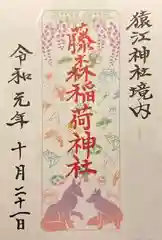 猿江神社境内
藤森稲荷神社
令和元年十月二十一日